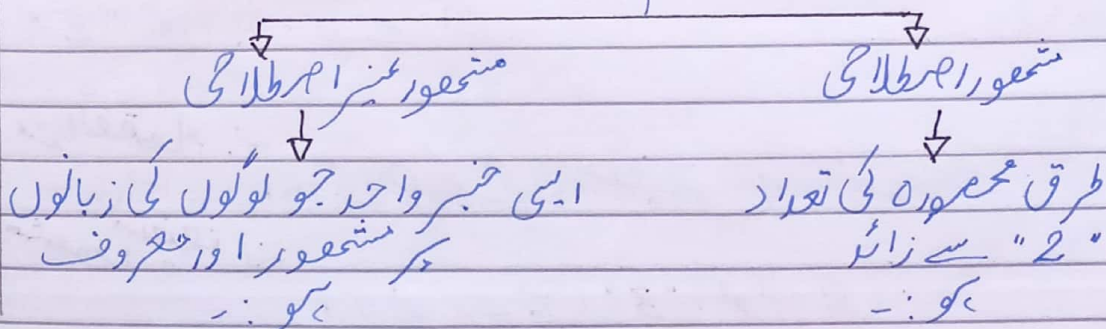 مشھور اصطلاحی
مشھور غیر اصطلاحی
طرق محصورہ کی تعداد
"2" سے زائد
ہو :-
ایسی خبر واحد جو لوگوں کی زبانوں
پر مشھور اور معروف
ہو :-